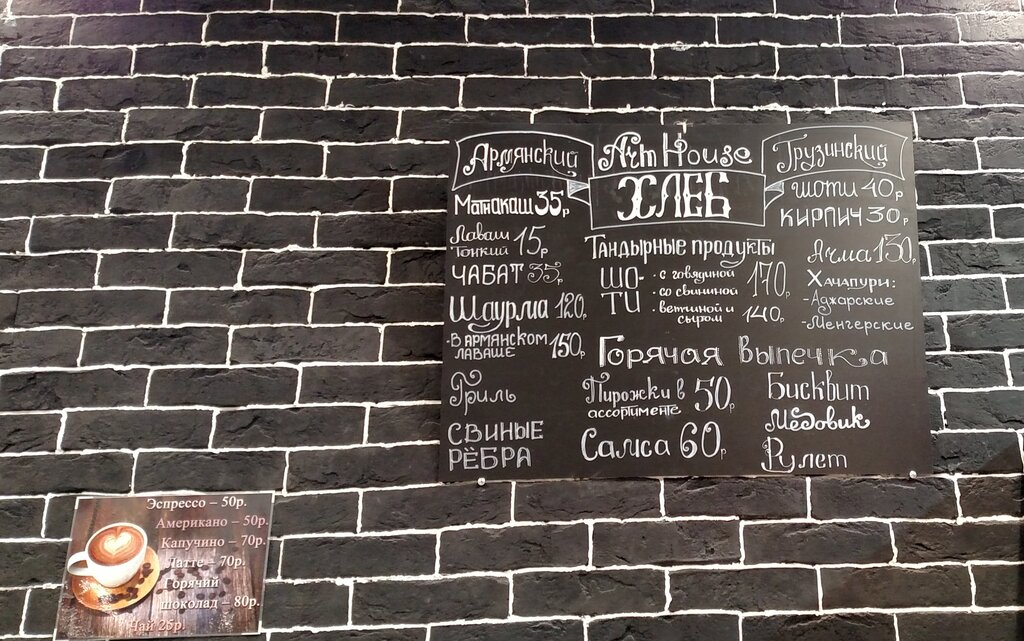 Армянский
Матнакаш 35р
Лаваш
Тонкий 15р
ЧАБАТ 35р
Шаурма 120р
-В АРМЯНСКОМ
ЛАВАШЕ 150р
Гриль
СВИНЫЕ
РЁБРА
Art House
ХЛЕБ
Тандырные продукты
ШО-
ТИ
· с говядиной
· со свининой 170р
· ветчиной и
сыром 140р
Грузинский
шоти 40р
КИРПИЧ 30р
Ачма 130р
Хачапури:
-Аджарские
-Менгерские
Горячая выпечка
Пирожки в
ассортименте 50р
Самса 60р
Бисквит
Медовик
Рулет
Эспрессо – 50р.
Американо – 50р.
Капучино – 70р.
Латте – 70р.
Горячий
шоколад – 80р.
Чай 25р.